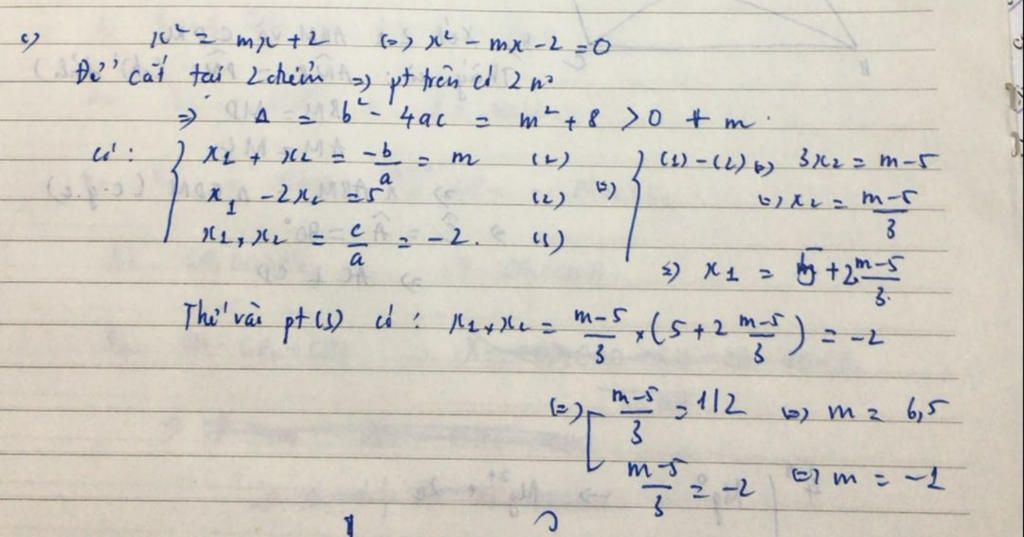 c) x² = mx + 2 (=) x² - mx - 2 = 0
Để cắt tại 2 điểm => pt trên có 2 n°
=> Δ = b² - 4ac = m² + 8 > 0 ∀ m.
có: { x1 + x2 = -b/a = m (1) (=) { (1) - (2) (=) 3x2 = m-5
x1 - 2x2 = 5 (2) (=) x2 = (m-5)/3
x1 x x2 = c/a = -2. (3) => x1 = 5 + 2 (m-5)/3.
Thế vào pt (3) có: x1 x x2 = (m-5)/3 x (5 + 2 (m-5)/3) = -2
(=) [ (m-5)/3 = 1/2 (=) m = 6,5
(m-5)/3 = -2 (=) m = -1